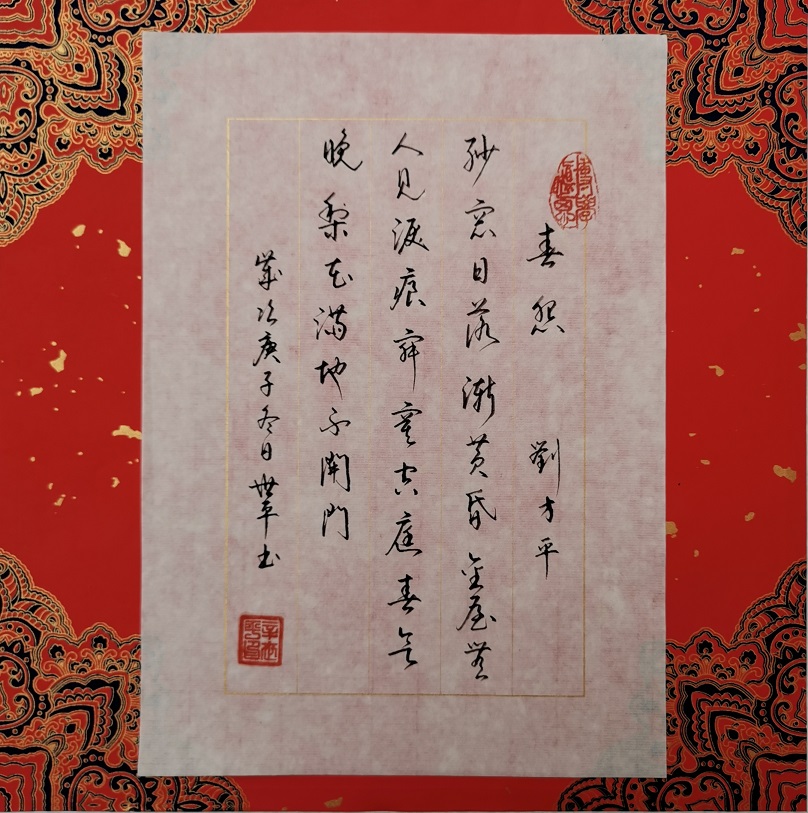 春怨 劉方平
紗窗日落漸黃昏金屋無
人見淚痕寂寞空庭春欲
晚梨花滿地不開門
歲次庚子冬日世平書